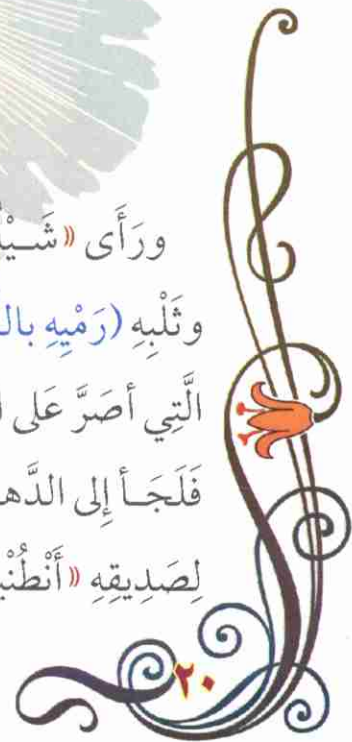 ورَأَى «شَـيْلُ
وثَلْبِهِ (رَمْيِهِ بال
الَّتِي أصَرَّ عَلى ا
فَلَجَـأ إلى الدَّهـ
لِصَدِيقِهِ «أَنْطُنْيـ
٢٠